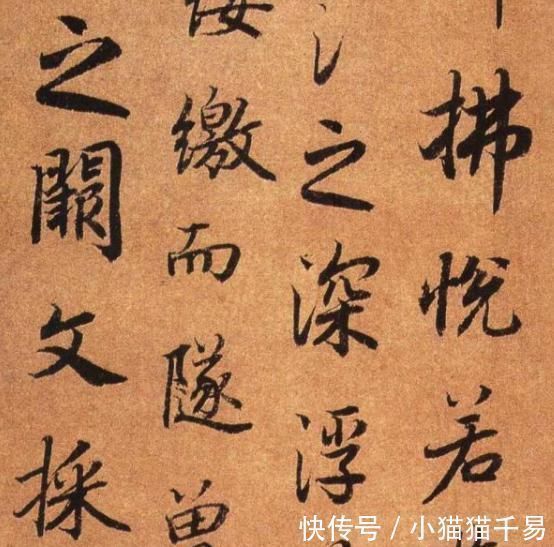 拂悅若
之深浮
繳而隧曾
之闕文採
快传号 / 小猫猫千易